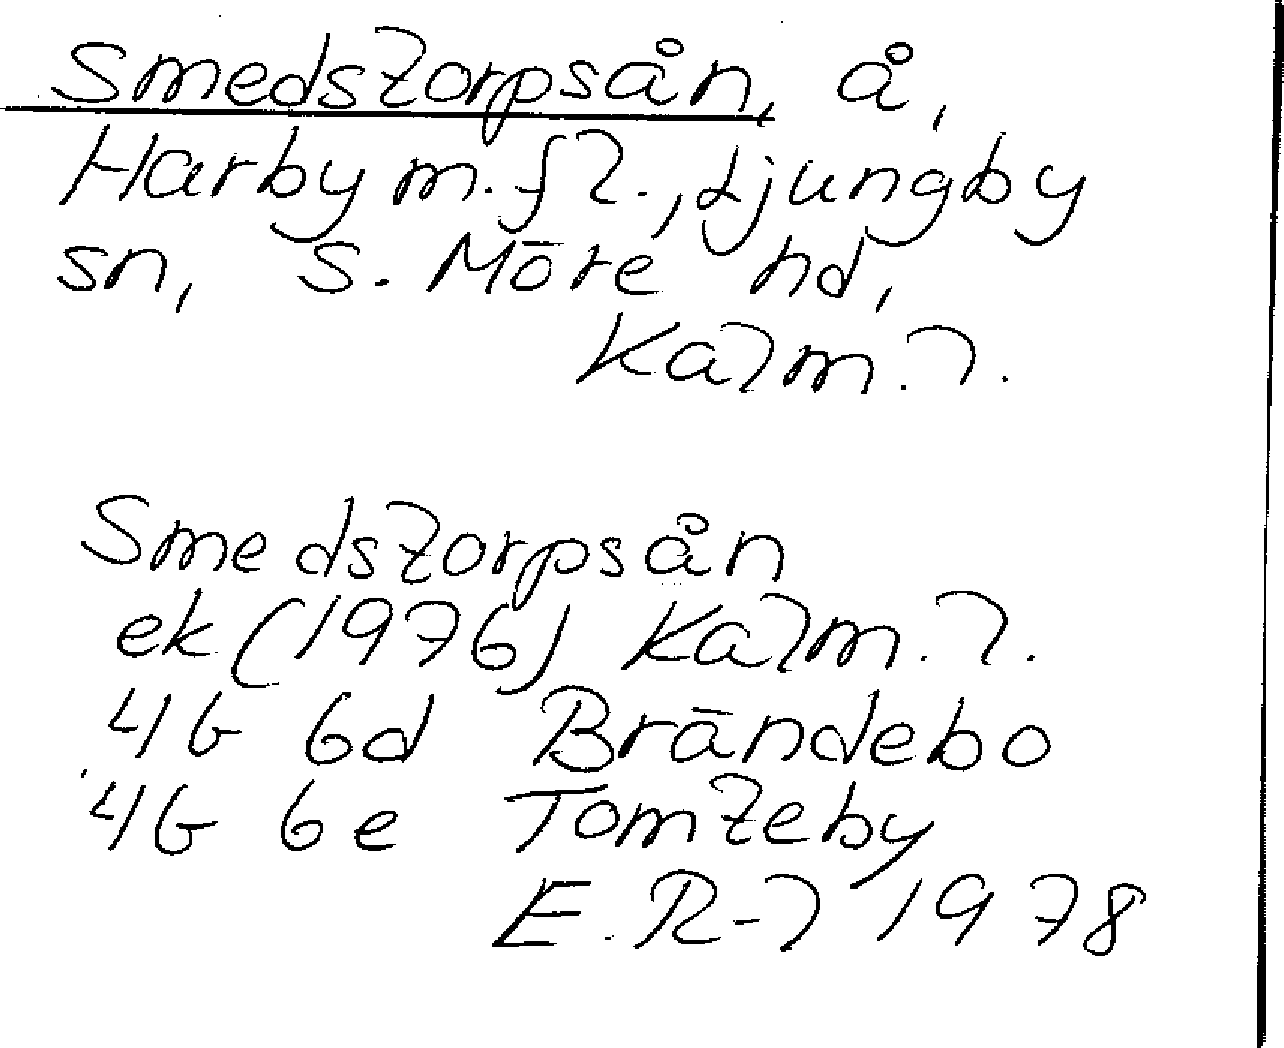 Smedstorpsån, å,
Harby m.fl., Ljungby
sn, S. Möre hd,
Kalm. l.
Smedstorpsån
ek (1976) Kalm. l.
4G 6d Brändebo
4G 6e Tomteby
E. R-l 1978